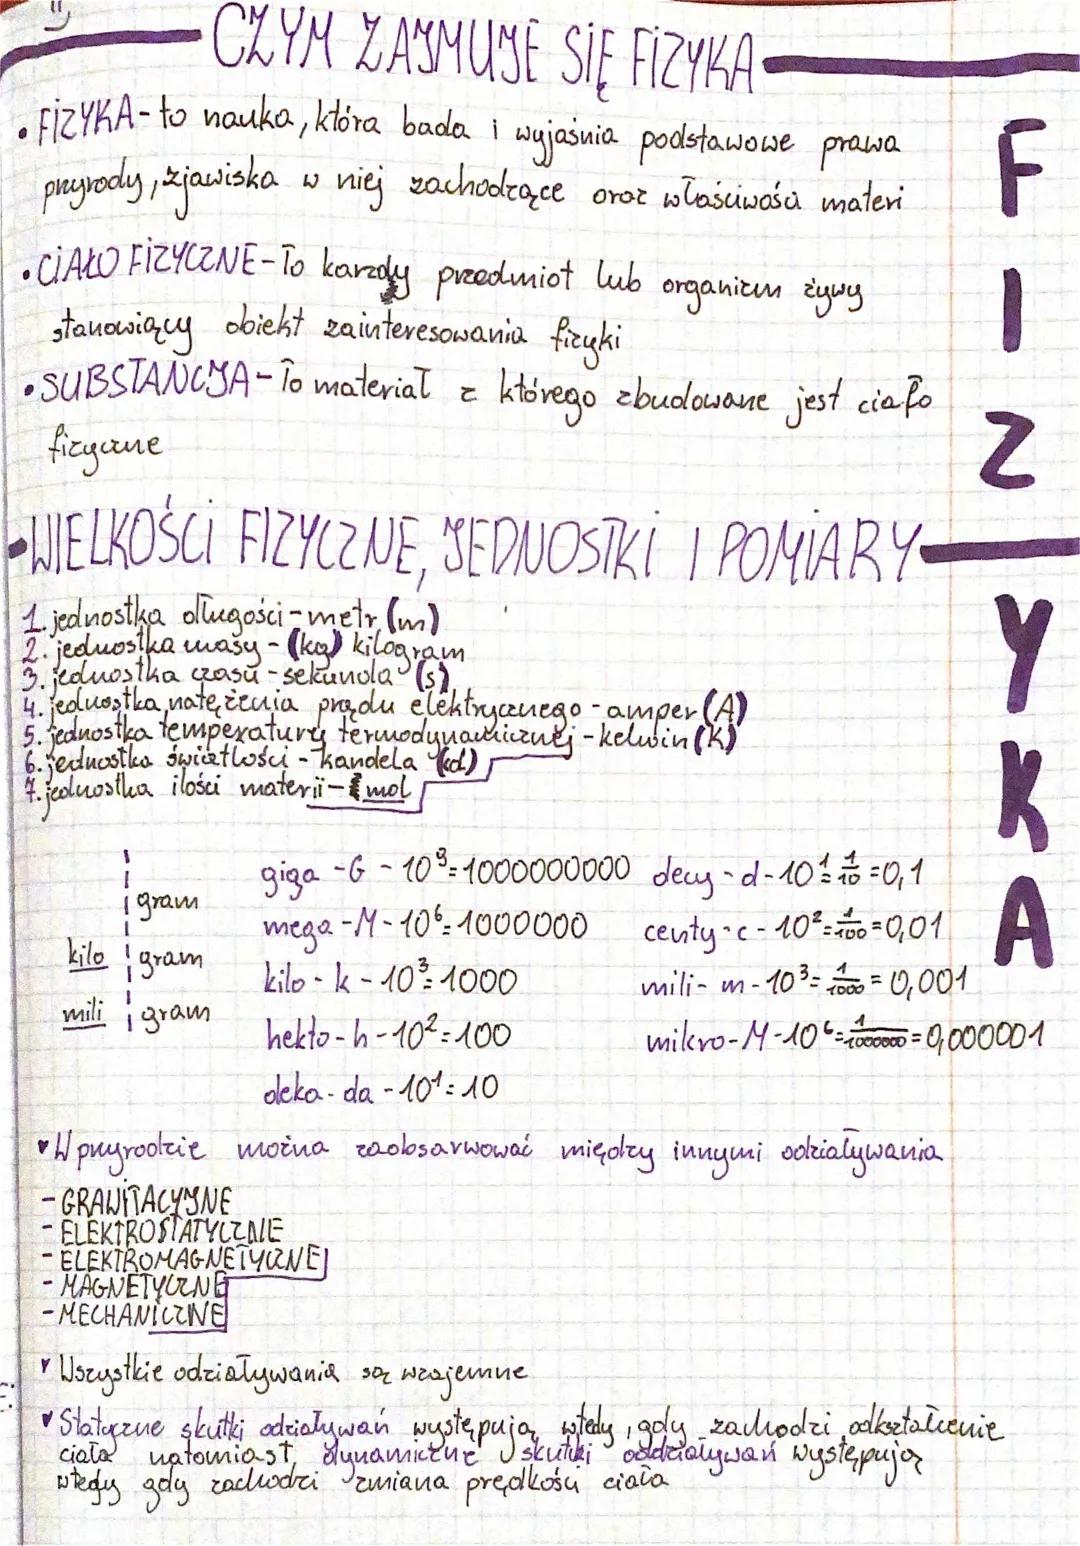 CZYM ZAJMUJE SIĘ FIZYKA
• FIZYKA - to nauka, która bada i wyjaśnia podstawowe prawa
przyrody, zjawiska w niej zachodzące oraz właściwości materi
• CIAŁO FIZYCZNE - To karzdy przedmiot lub organizm żywy
stanowiący obiekt zainteresowania fizyki
• SUBSTANCJA - To materiał z którego zbudowane jest ciało
fizyczne
WIELKOŚCI FIZYCZNE, JEDNOSTKI I POMIARY
1. jednostka długości - metr (m)
2. jednostka masy - (kg) kilogram
3. jednostka czasu - sekunda (s)
4. jednostka natężenia prądu elektrycznego - amper (A)
5. jednostka temperatury termodynamicznej - kelwin (K)
6. jednostka światłości - kandela (cd)
7. jednostka ilości materii - mol
gram
kilo gram
mili gram
giga - G - 10⁹ = 1000000000
mega - M - 10⁶ = 1000000
kilo - k - 10³ = 1000
hekto - h - 10² = 100
deka - da - 10¹ = 10
decy - d - 10¹ = 1/10 = 0,1
centy - c - 10² = 1/100 = 0,01
mili - m - 10³ = 1/1000 = 0,001
mikro - M - 10⁶ = 1/1000000 = 0,000001
W przyrodzie można zaobsarwować między innymi odziaływania
- GRAWITACYJNE
- ELEKTROSTATYCZNE
- ELEKTROMAGNETYCZNE
- MAGNETYCZNE
- MECHANICZNE
Wszystkie odziaływania są wzajemne
Statyczne skutki odziaływań występują wtedy, gdy zachodzi odkształcenie
ciała natomiast, dynamiczne skutki oddziaływań występują
wtedy gdy zachodzi zmiana prędkości ciała
F
I
Z
Y
K
A